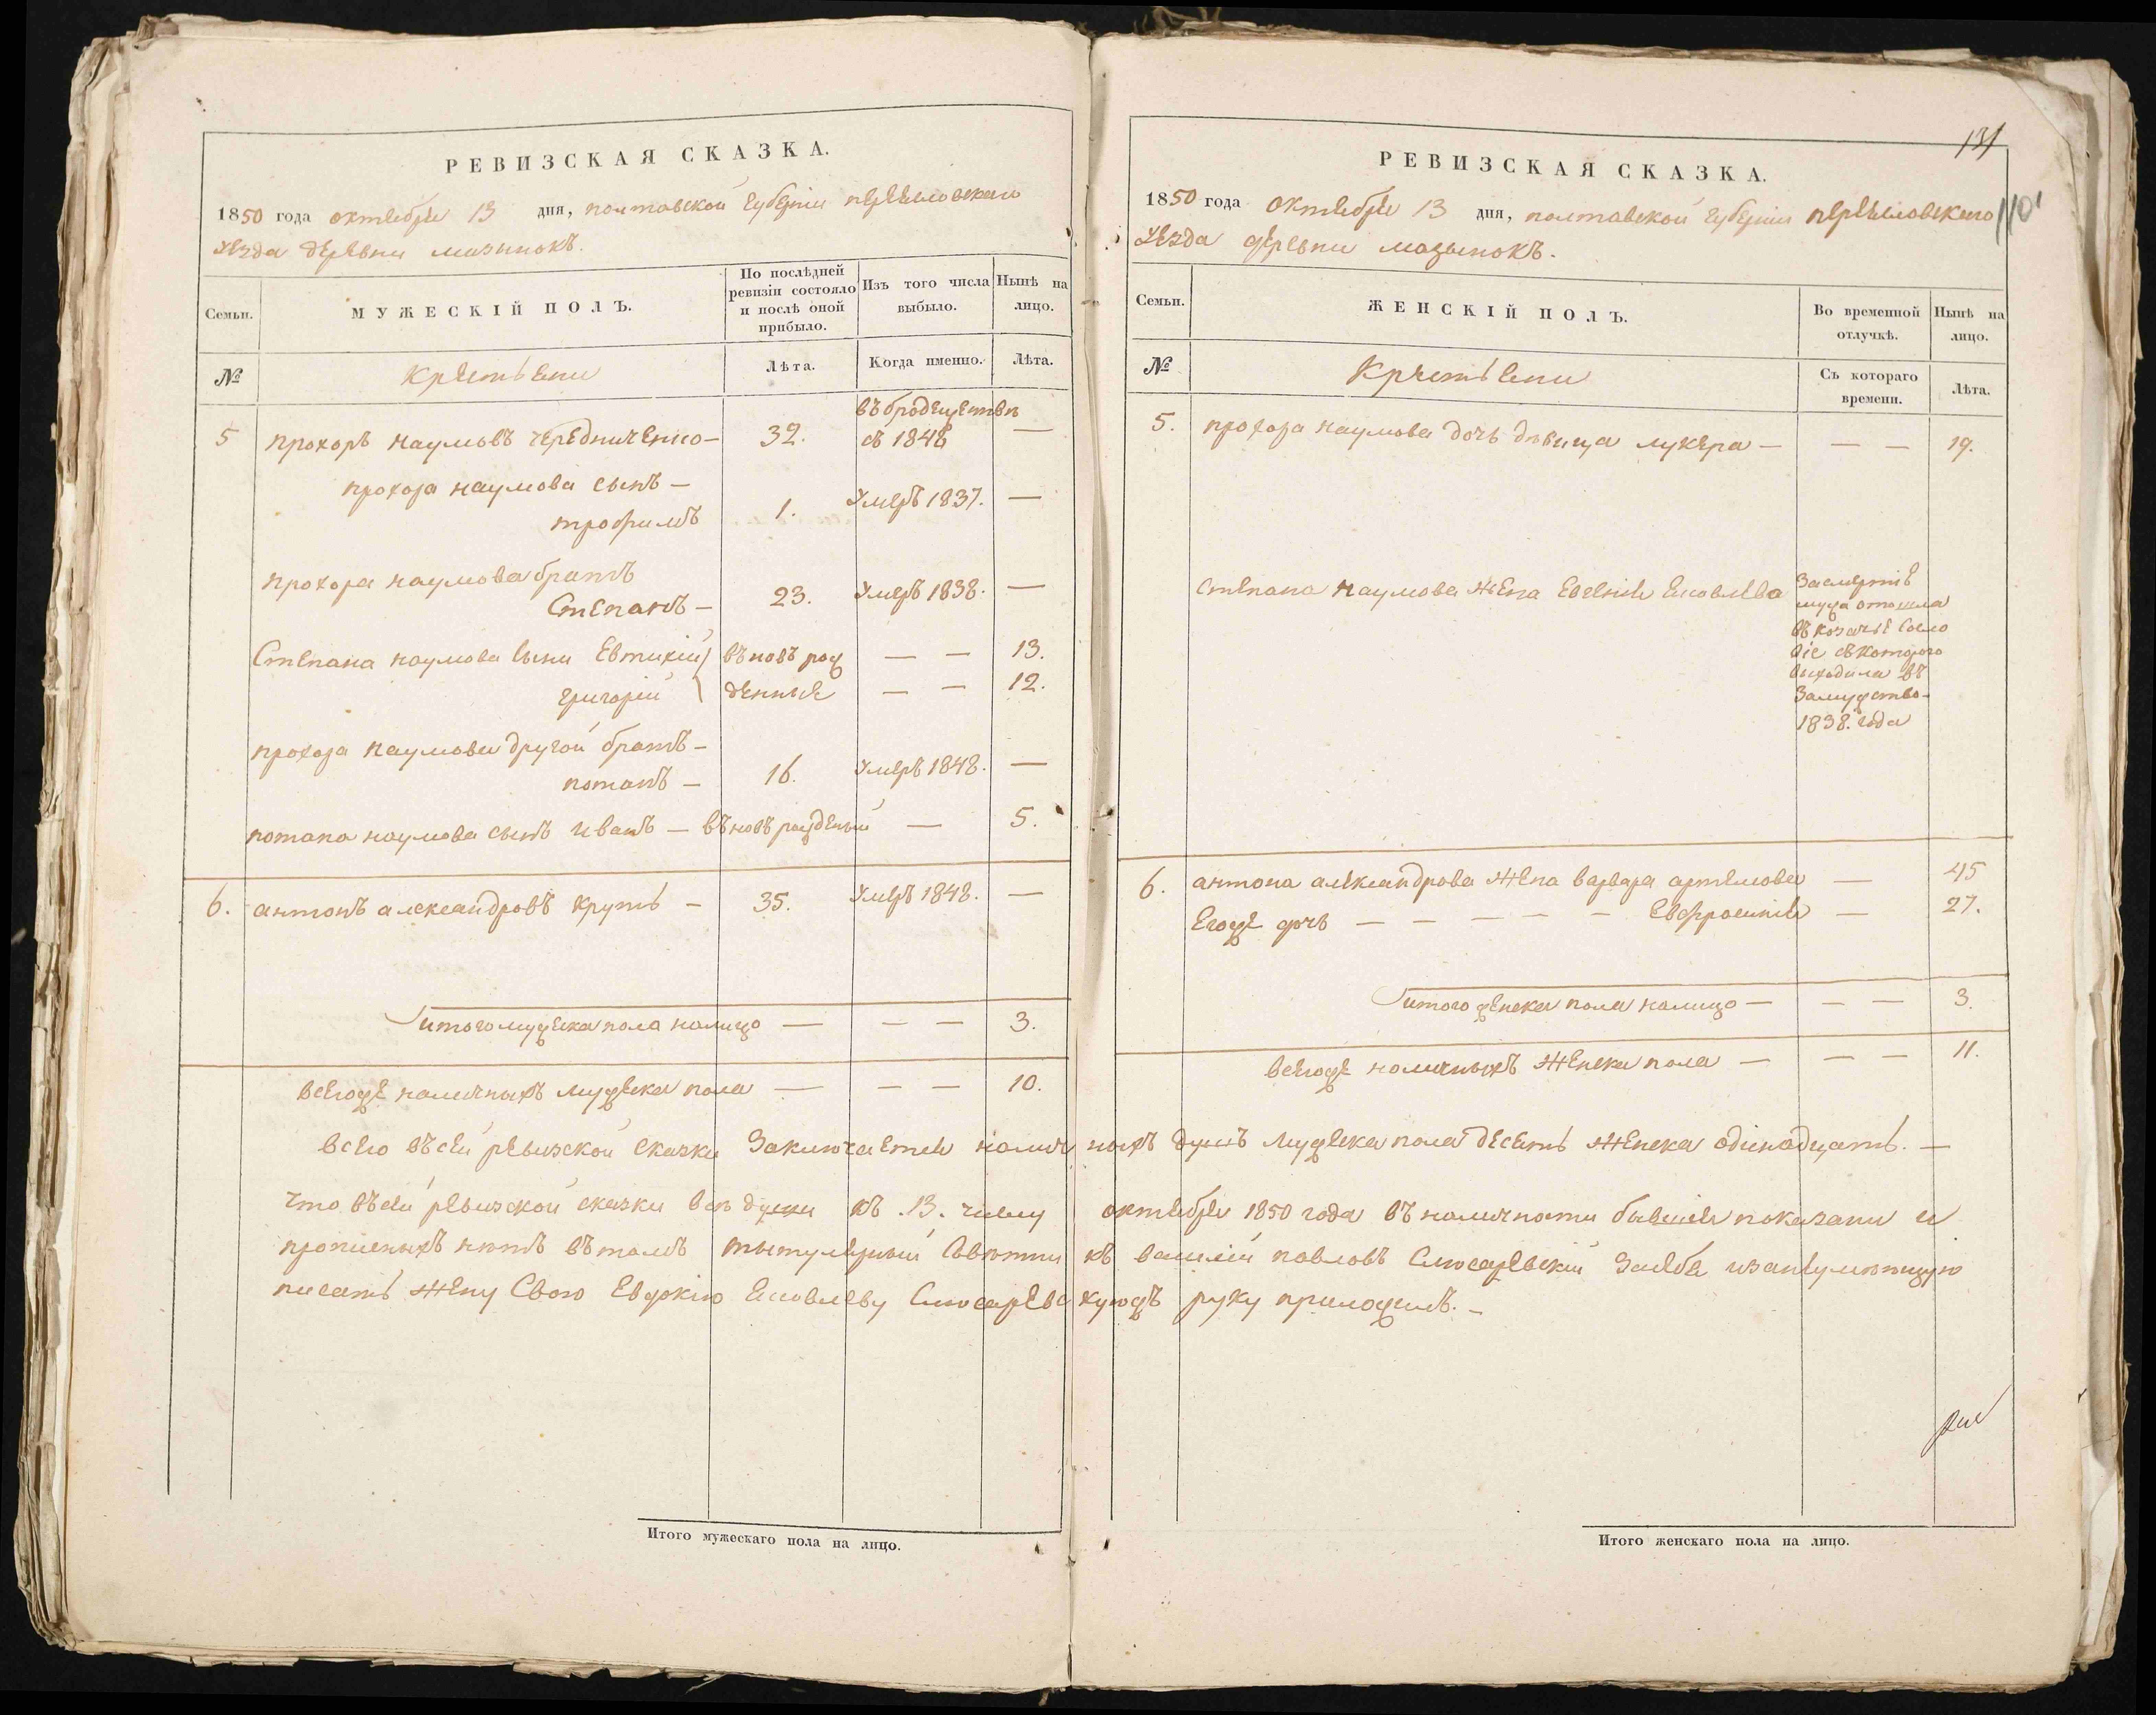 РЕВИЗСКАЯ СКАЗКА.
1850 года октября 13 дня, полтавской губерніи переяловскаго
уезда деревни мазинокъ.
Семьи.
МУЖЕСКІЙ ПОЛЪ.
По послѣдней ревизіи состояло и послѣ оной прибыло.
Изъ того числа выбыло.
Нынѣ на лицо.
№
Крестьяни
Лѣта.
Когда именно.
Лѣта.
въ бродяжествѣ
5 прохоръ наумовъ чередниченко — 32. съ 1848 —
прохора наумова сынъ —
трофимъ 1. умеръ 1837. —
прохора наумова братъ
Степанъ — 23. умеръ 1838. —
Степана наумова сыни Евтихій въновъ рож — — 13.
григорій денные — — 12.
прохора наумова другой братъ —
потапъ — 16. умеръ 1848. —
потапа наумова сынъ иванъ — въновъ рожденый — 5.
6. антонъ александровъ круть — 35. умеръ 1848. —
итого мужеска пола налицо — — — 3.
всегоже наличныхъ мужеска пола — — — 10.
Итого мужескаго пола на лицо.
131
110
РЕВИЗСКАЯ СКАЗКА.
1850 года октября 13 дня, полтавской губерніи переяловского
уезда деревни мазынокъ.
Семьи.
ЖЕНСКІЙ ПОЛЪ.
Во временной отлучкѣ.
Нынѣ на лицо.
№
Крестьяни
Съ котораго времени.
Лѣта.
5. прохора наумова дочь дѣвица лукера — — — 19.
степана наумова жена Евгенія Яковлева
Засмертіе
мужа отошла
въ козачіе Сосло
віе съкоторого
выходила въ
Замужство
1838. года
6. антона александрова жена варвара артемова — 45
Егоже дочь — — — — — Евфросинія — 27.
итого женска пола налицо — — — 3.
всегоже наличныхъ женска пола — — — 11.
всего въсей ревизской сказки Заключается наличныхъ душъ мужеска пола десять женска одінадцать. —
что въсей ревизской сказки всѣ души къ .13. числу октября 1850 года въ наличности бывшія показани и
прописныхъ нѣтъ вътомъ тытулярный Совѣтникъ василій павловъ Слюсаревскій Засебя изанеумѣющую
писать жену Свою Евдокію Яковлеву Слюсаревскуюжъ руку приложилъ. —
Итого женскаго пола на лицо.